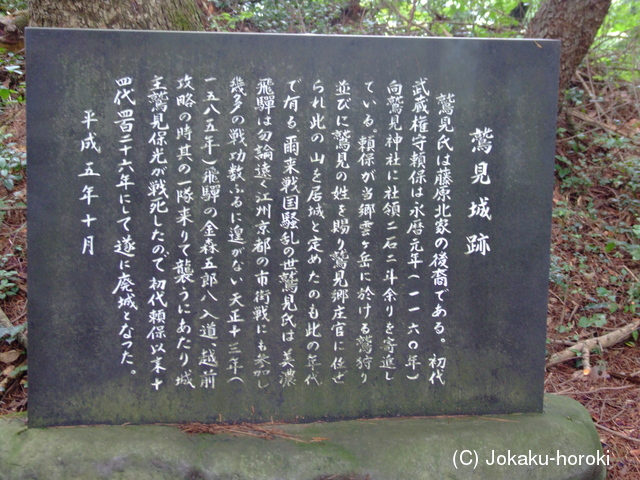 鷲見城跡
鷲見氏は藤原北家の後裔である。初代
武蔵権守頼保は永暦元年(一一六〇年)
向鷲見神社に社領二石二斗余りを寄進し
ている。頼保が当郷雲ヶ岳に於ける鷲狩り
並びに鷲見の姓を賜り鷲見郷庄官に任せ
られ此の山を居城と定めたのも此の年代
で有る 爾来戦国騒乱の世鷲見氏は美濃
飛騨は勿論遠く江州京都の市街戦にも参加し
幾多の戦功数ふるに遑がない天正十三年(
一五八五年)飛騨の金森五郎八入道、越前
攻略の時其の一隊来りて襲うにあたり城
主鷲見保光が戦死したので初代頼保以来十
四代四百二十六年にして遂に廃城となった。
平成五年十月
(C) Jokaku-horoki